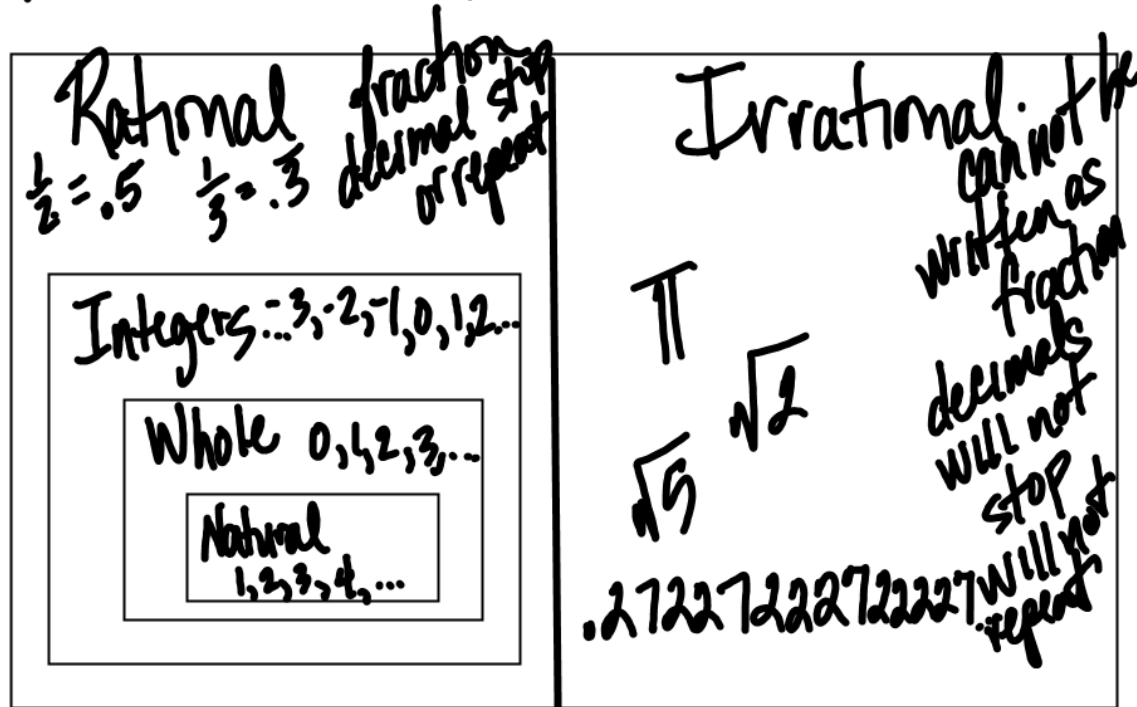 Rational
fraction
decimal stop
or repeat
1/2 = .5 1/3 = .3̅
Integers ...-3, -2, -1, 0, 1, 2...
Whole 0, 1, 2, 3, ...
Natural
1, 2, 3, 4, ...
Irrational.
can not be
written as
fraction
decimals
will not
stop
will not
repeat
π
√2
√5
.27227222722227...